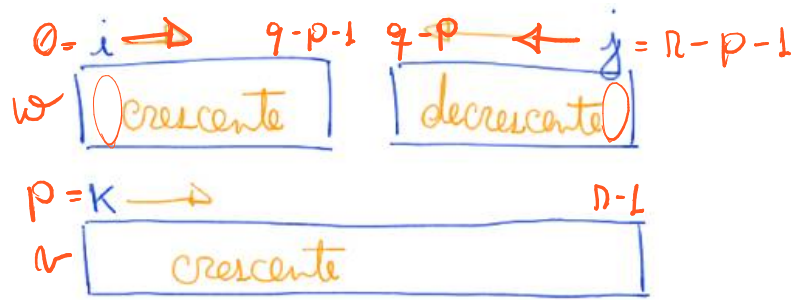 0 = i q-p-1 q-p j = n-p-1
w crescente decrescente
p = K n-1
v crescente